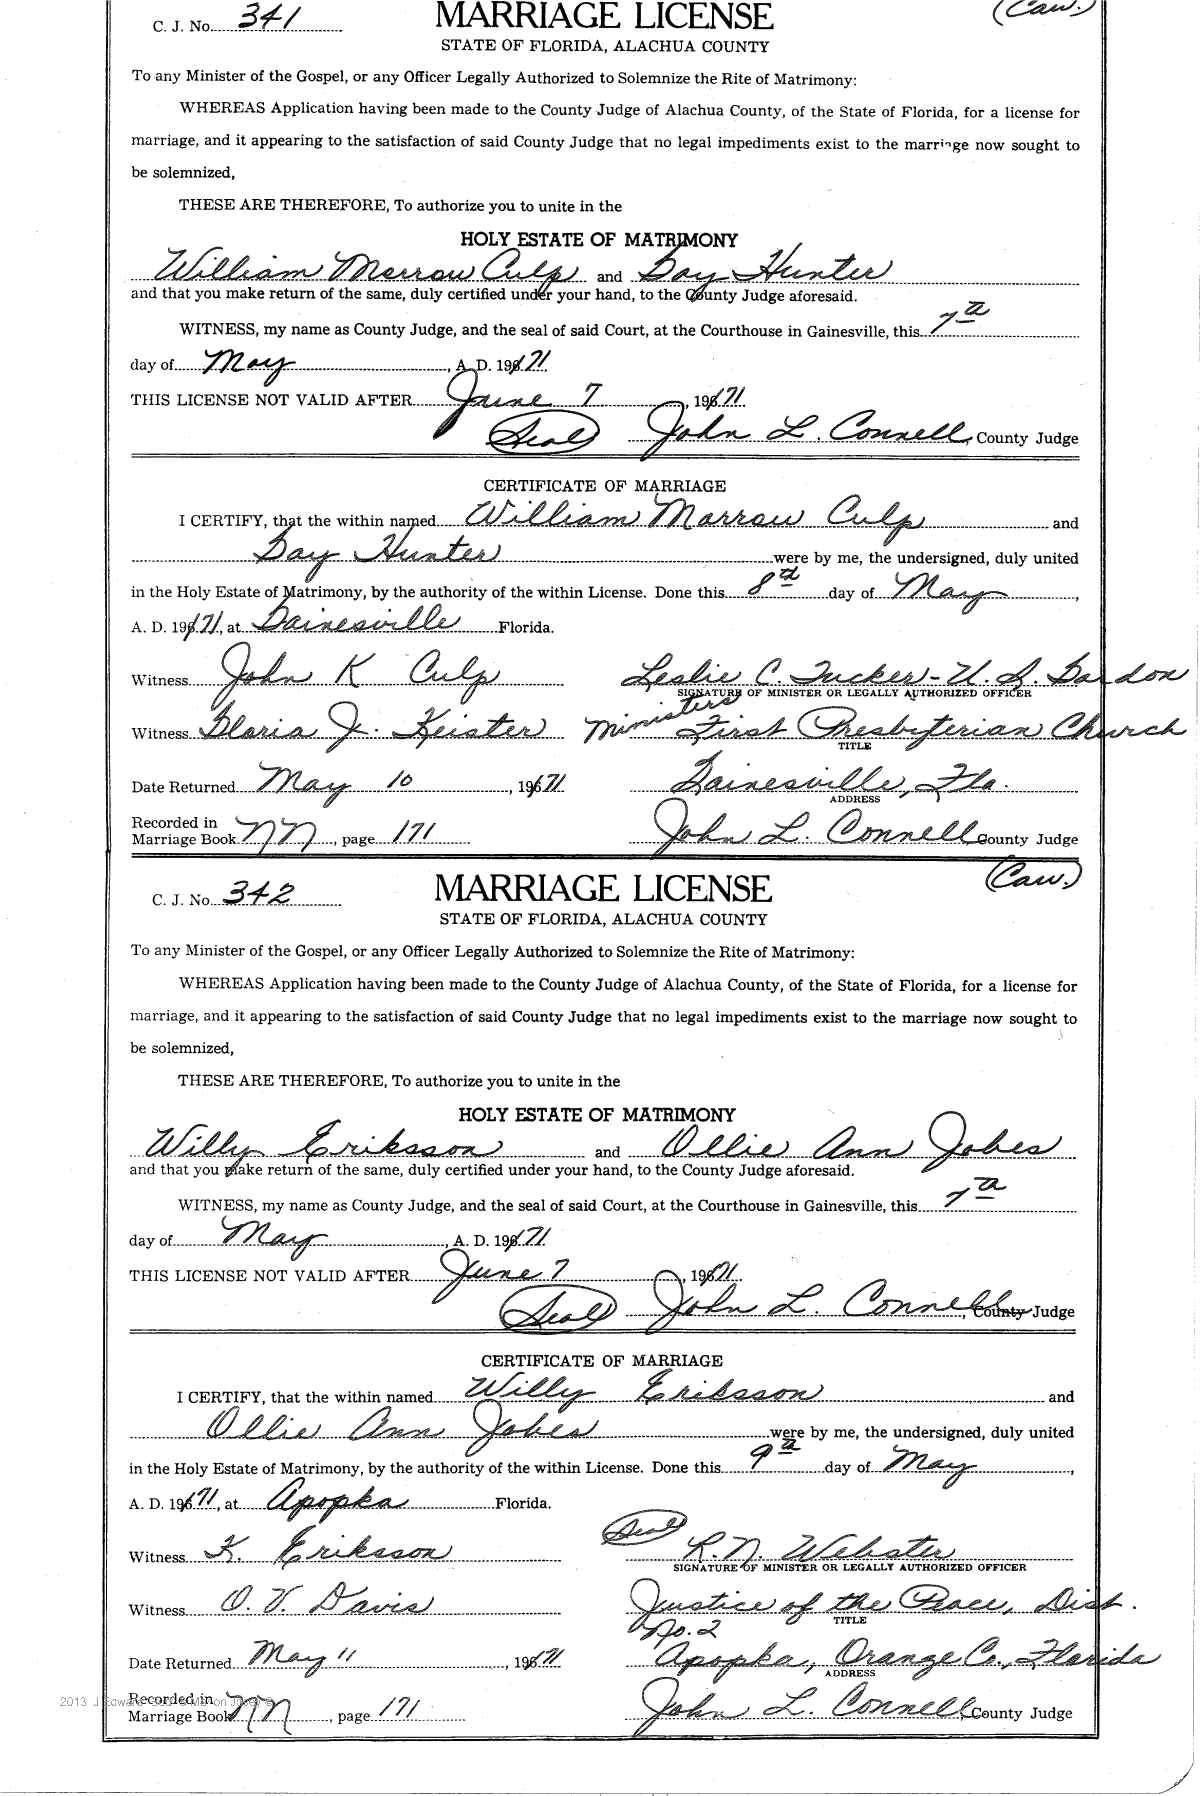 C. J. No. 341
MARRIAGE LICENSE
(Cau.)
STATE OF FLORIDA, ALACHUA COUNTY
To any Minister of the Gospel, or any Officer Legally Authorized to Solemnize the Rite of Matrimony:
WHEREAS Application having been made to the County Judge of Alachua County, of the State of Florida, for a license for
marriage, and it appearing to the satisfaction of said County Judge that no legal impediments exist to the marriage now sought to
be solemnized,
THESE ARE THEREFORE, To authorize you to unite in the
HOLY ESTATE OF MATRIMONY
William Morrow Culp and Gay Hunter
and that you make return of the same, duly certified under your hand, to the County Judge aforesaid.
WITNESS, my name as County Judge, and the seal of said Court, at the Courthouse in Gainesville, this 7th
day of May, A. D. 1971
THIS LICENSE NOT VALID AFTER June 7, 1971
(Seal) John L. Connell, County Judge
CERTIFICATE OF MARRIAGE
I CERTIFY, that the within named William Morrow Culp and
Gay Hunter were by me, the undersigned, duly united
in the Holy Estate of Matrimony, by the authority of the within License. Done this 8th day of May,
A. D. 1971, at Gainesville Florida.
Witness John K Culp Leslie C. Tucker - U. S. Gordon
SIGNATURE OF MINISTER OR LEGALLY AUTHORIZED OFFICER
Witness Gloria J. Keister Ministers First Presbyterian Church
TITLE
Date Returned May 10, 1971 Gainesville, Fla.
ADDRESS
Recorded in
Marriage Book NN, page 171 John L. Connell County Judge
C. J. No. 342
MARRIAGE LICENSE
(Cau.)
STATE OF FLORIDA, ALACHUA COUNTY
To any Minister of the Gospel, or any Officer Legally Authorized to Solemnize the Rite of Matrimony:
WHEREAS Application having been made to the County Judge of Alachua County, of the State of Florida, for a license for
marriage, and it appearing to the satisfaction of said County Judge that no legal impediments exist to the marriage now sought to
be solemnized,
THESE ARE THEREFORE, To authorize you to unite in the
HOLY ESTATE OF MATRIMONY
Willy Eriksson and Ollie Ann Jobes
and that you make return of the same, duly certified under your hand, to the County Judge aforesaid.
WITNESS, my name as County Judge, and the seal of said Court, at the Courthouse in Gainesville, this 7th
day of May, A. D. 1971
THIS LICENSE NOT VALID AFTER June 7, 1971
(Seal) John L. Connell, County Judge
CERTIFICATE OF MARRIAGE
I CERTIFY, that the within named Willy Eriksson and
Ollie Ann Jobes were by me, the undersigned, duly united
in the Holy Estate of Matrimony, by the authority of the within License. Done this 9th day of May,
A. D. 1971, at Apopka Florida.
Witness K. Eriksson (Seal) R. N. Webster
SIGNATURE OF MINISTER OR LEGALLY AUTHORIZED OFFICER
Witness O. V. Davis Justice of the Peace, Dist.
TITLE
No. 2
Date Returned May 11, 1971 Apopka, Orange Co., Florida
ADDRESS
Recorded in
Marriage Book NN, page 171 John L. Connell, County Judge
2013